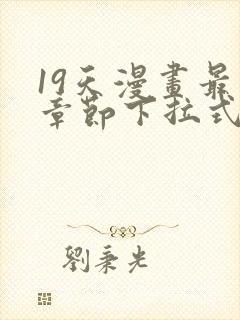 19天漫畫最
章節下拉式
劉秉光